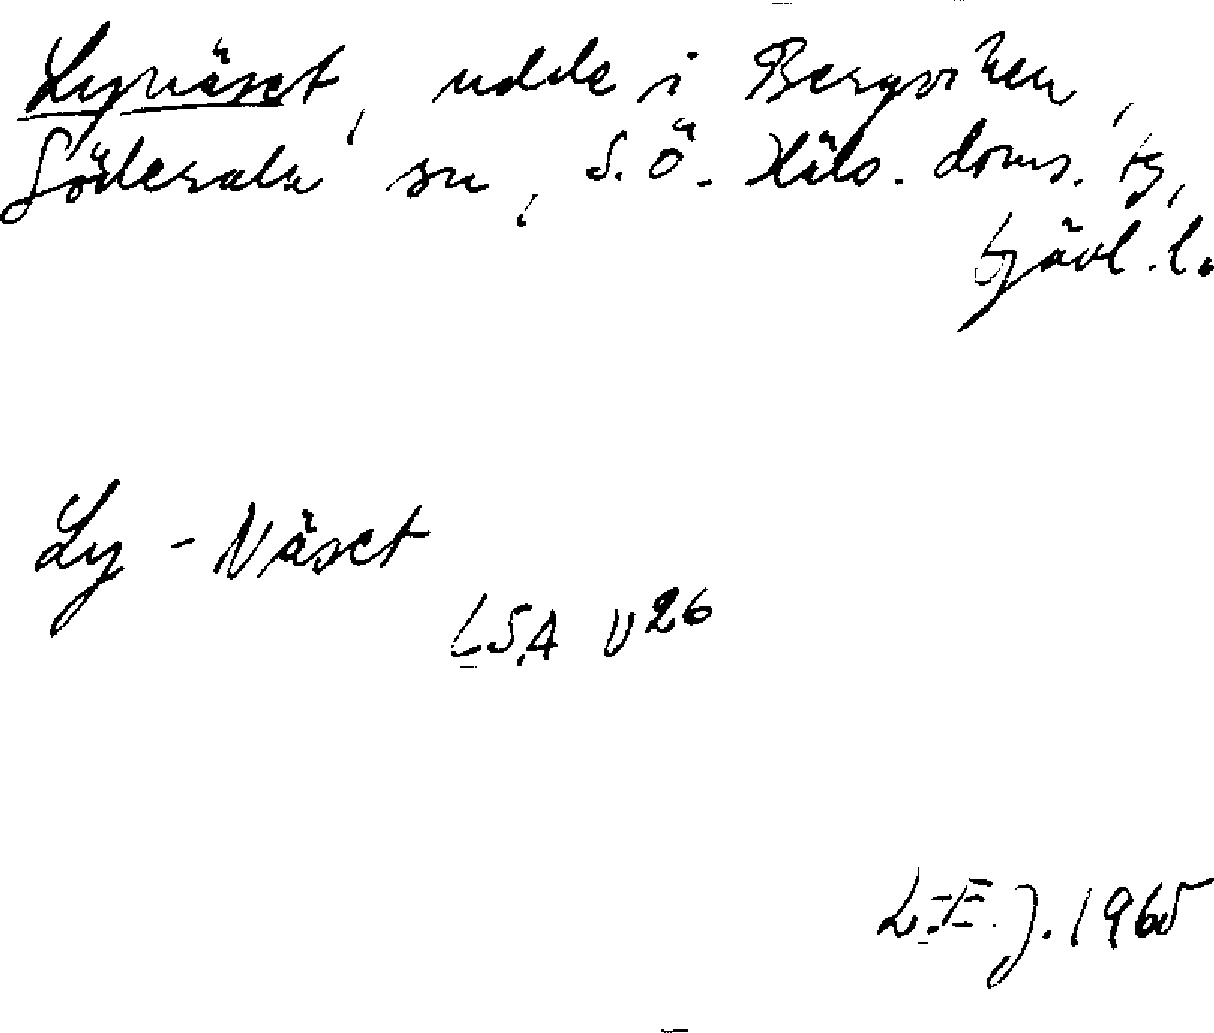 Lynäset, udde i Bergviken,
Söderala sn, S. Ö. Häls. doms. tg,
Gävl. l.
Ly - Näset
LSA U26
L.E.J. 1965